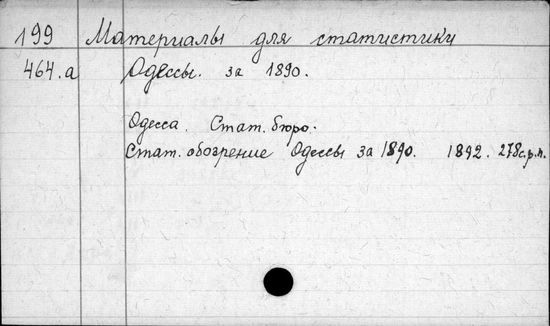 199 Материалы для статистики
464.а Одессы. за 1890.
Одесса. Стат. бюро.
Стат. обозрение Одессы за 1890. 1892. 278с.р.п.